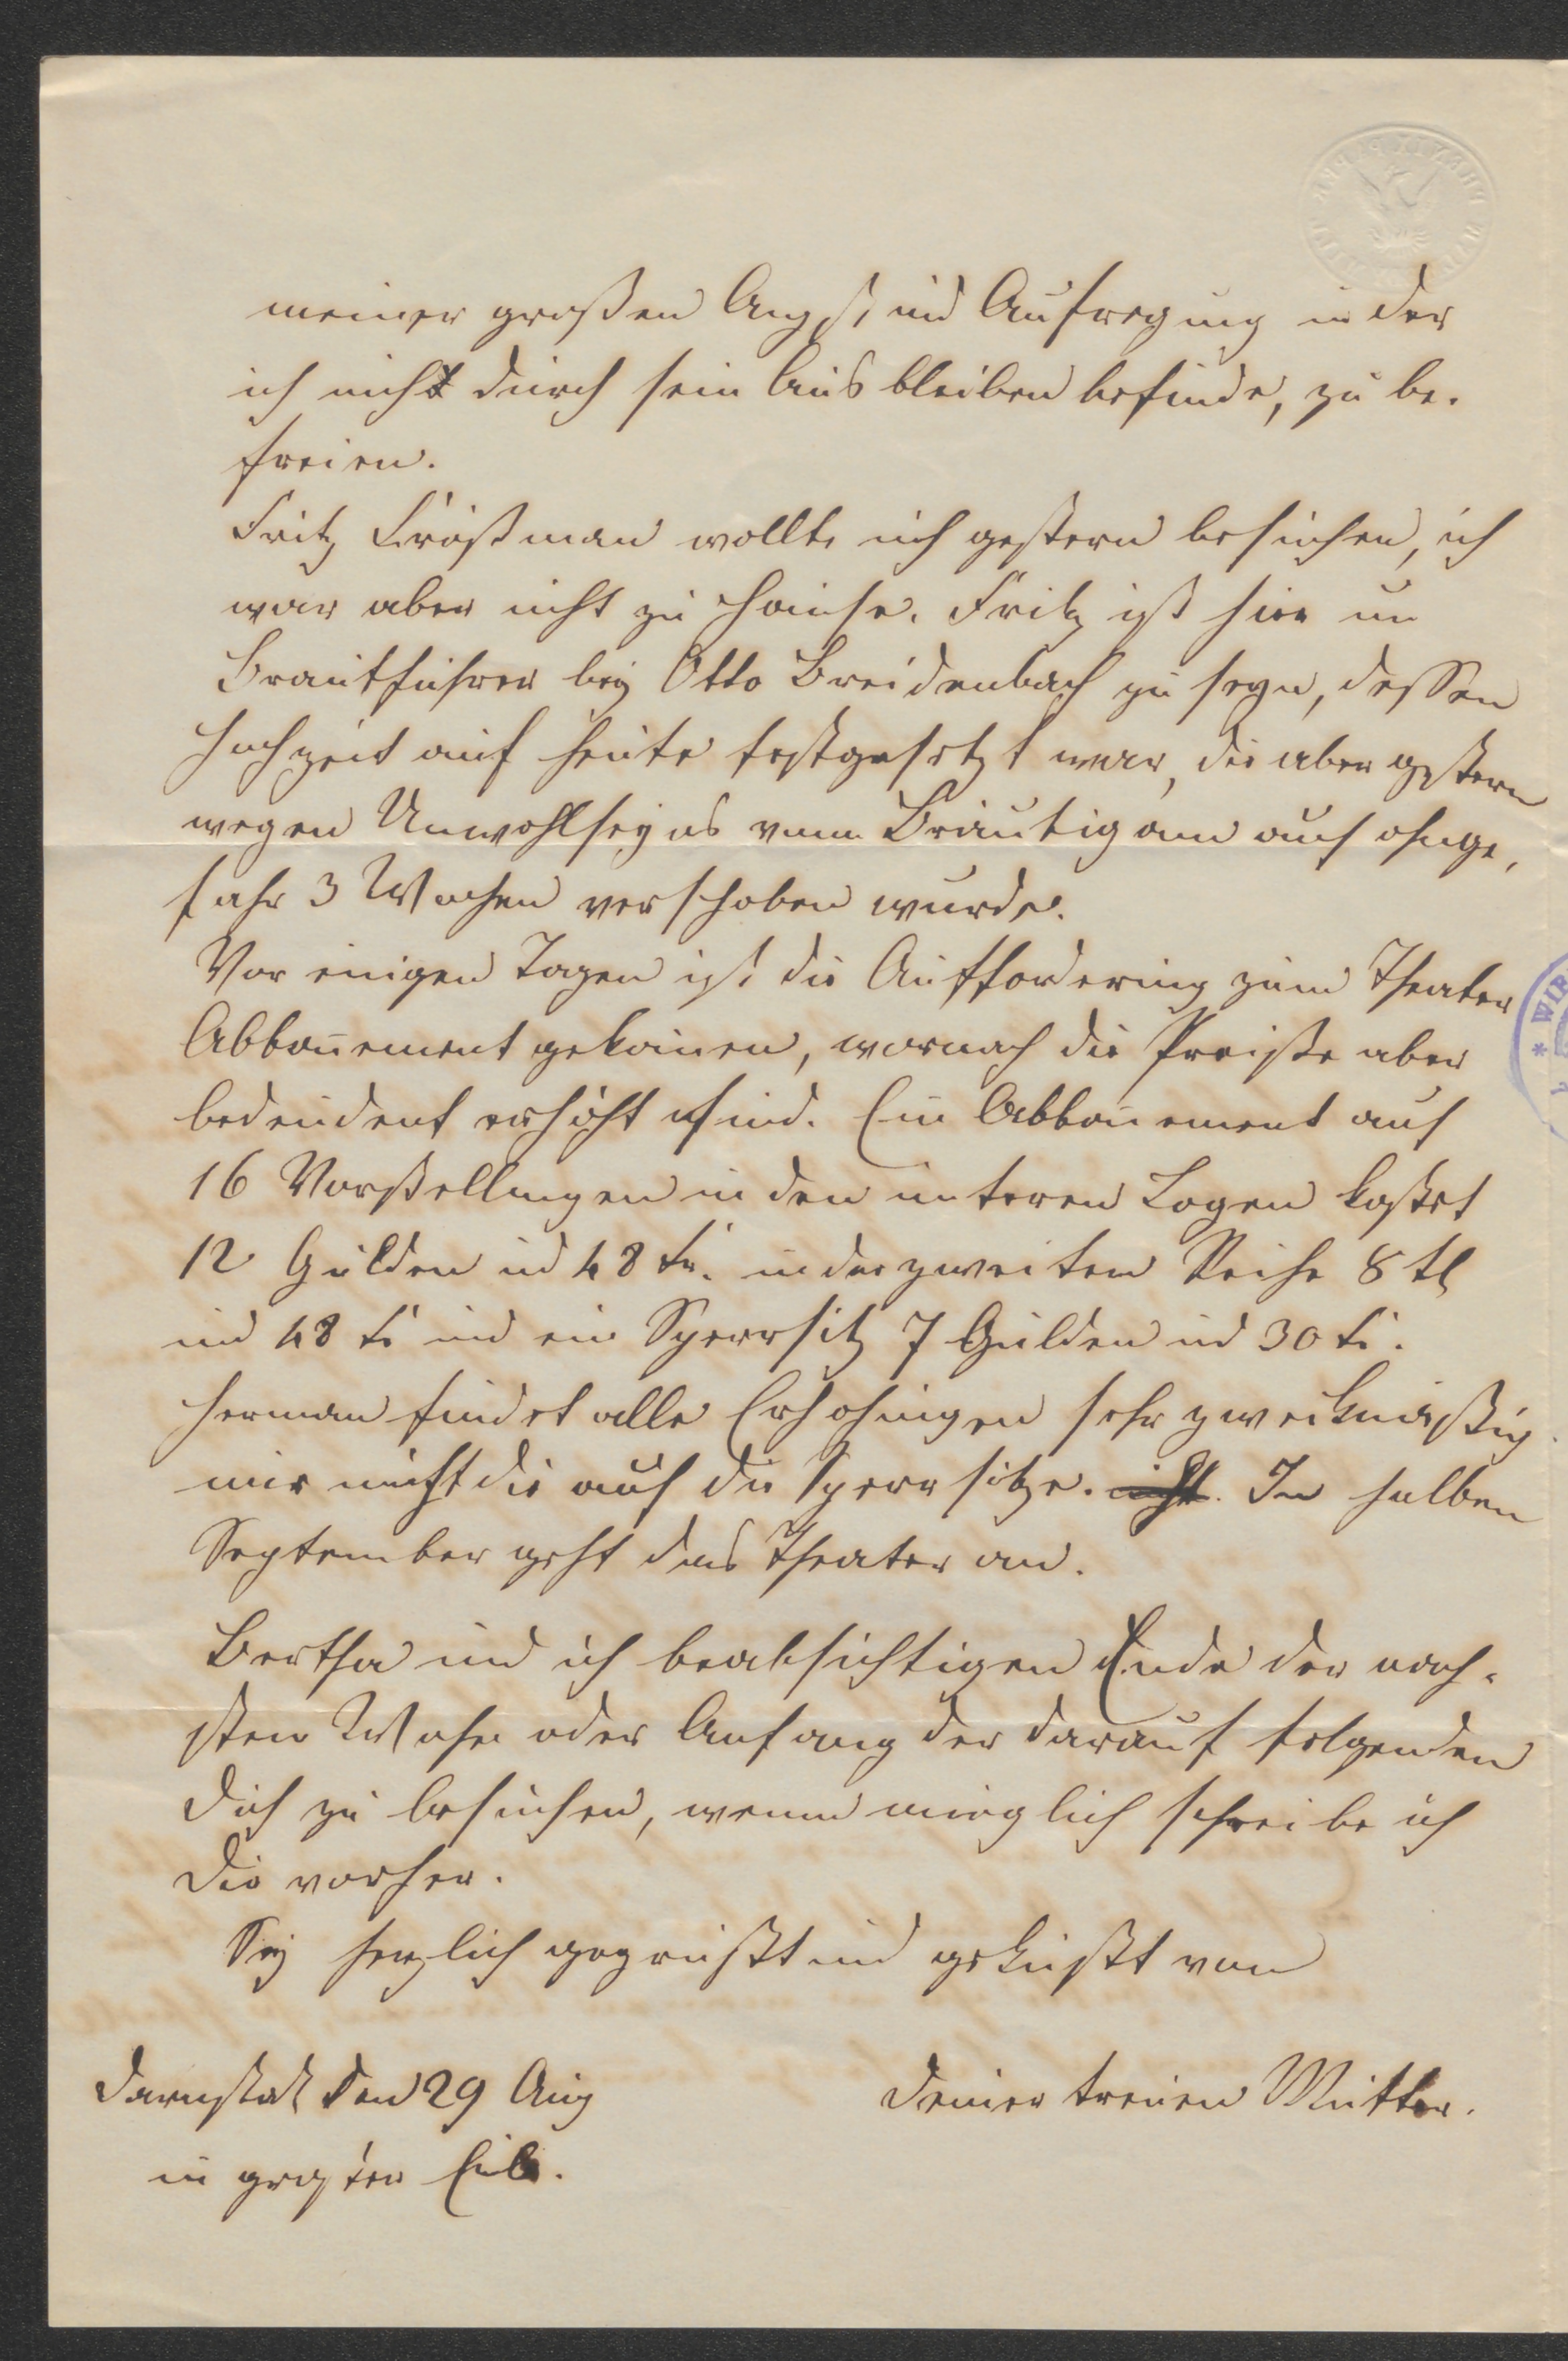 meiner großen Angst und Aufregung in der
ich mich durch sein Ausbleiben befinde, zu be-
freien.
Fritz Großman wollte mich gestern besuchen, ich
war aber nicht zu Hause. Fritz ist hier um
Brautführer bey Otto Breidenbach zu seyn, dessen
Hochzeit auf heute festgesetzt war, die aber gestern
wegen Unwohlseyns vom Bräutigam auf ohnge-
fahr 3 Wochen verschoben wurde.
Vor einigen Tagen ist die Aufforderung zum Theater
Abbonement gekommen, wornach die Preiße aber
bedeudent erhöht sind. Ein Abbonement auf
16 Vorstellungen in den unteren Logen kostet
12 Gulden und 48 kr. in der zweiten Reihe 8 fl
und 48 kr und ein Sperrsitz 7 Gulden und 30 kr.
Herman findet alle Erhohungen sehr zweckmäßig
nur nicht die auf die Sperrsitze. nicht. In halben
September geht das Theater an.
Bertha und ich beabsichtigen Ende der nach-
sten Woche oder Anfang der darauf folgenden
Dich zu besuchen, wenn moglich schreibe ich
Dir vorher.
Sey herzlich gegrüßt und geküßt von
Deiner treuen Mutter.
Darmstadt den 29 Aug
in großter Eile.
WIR